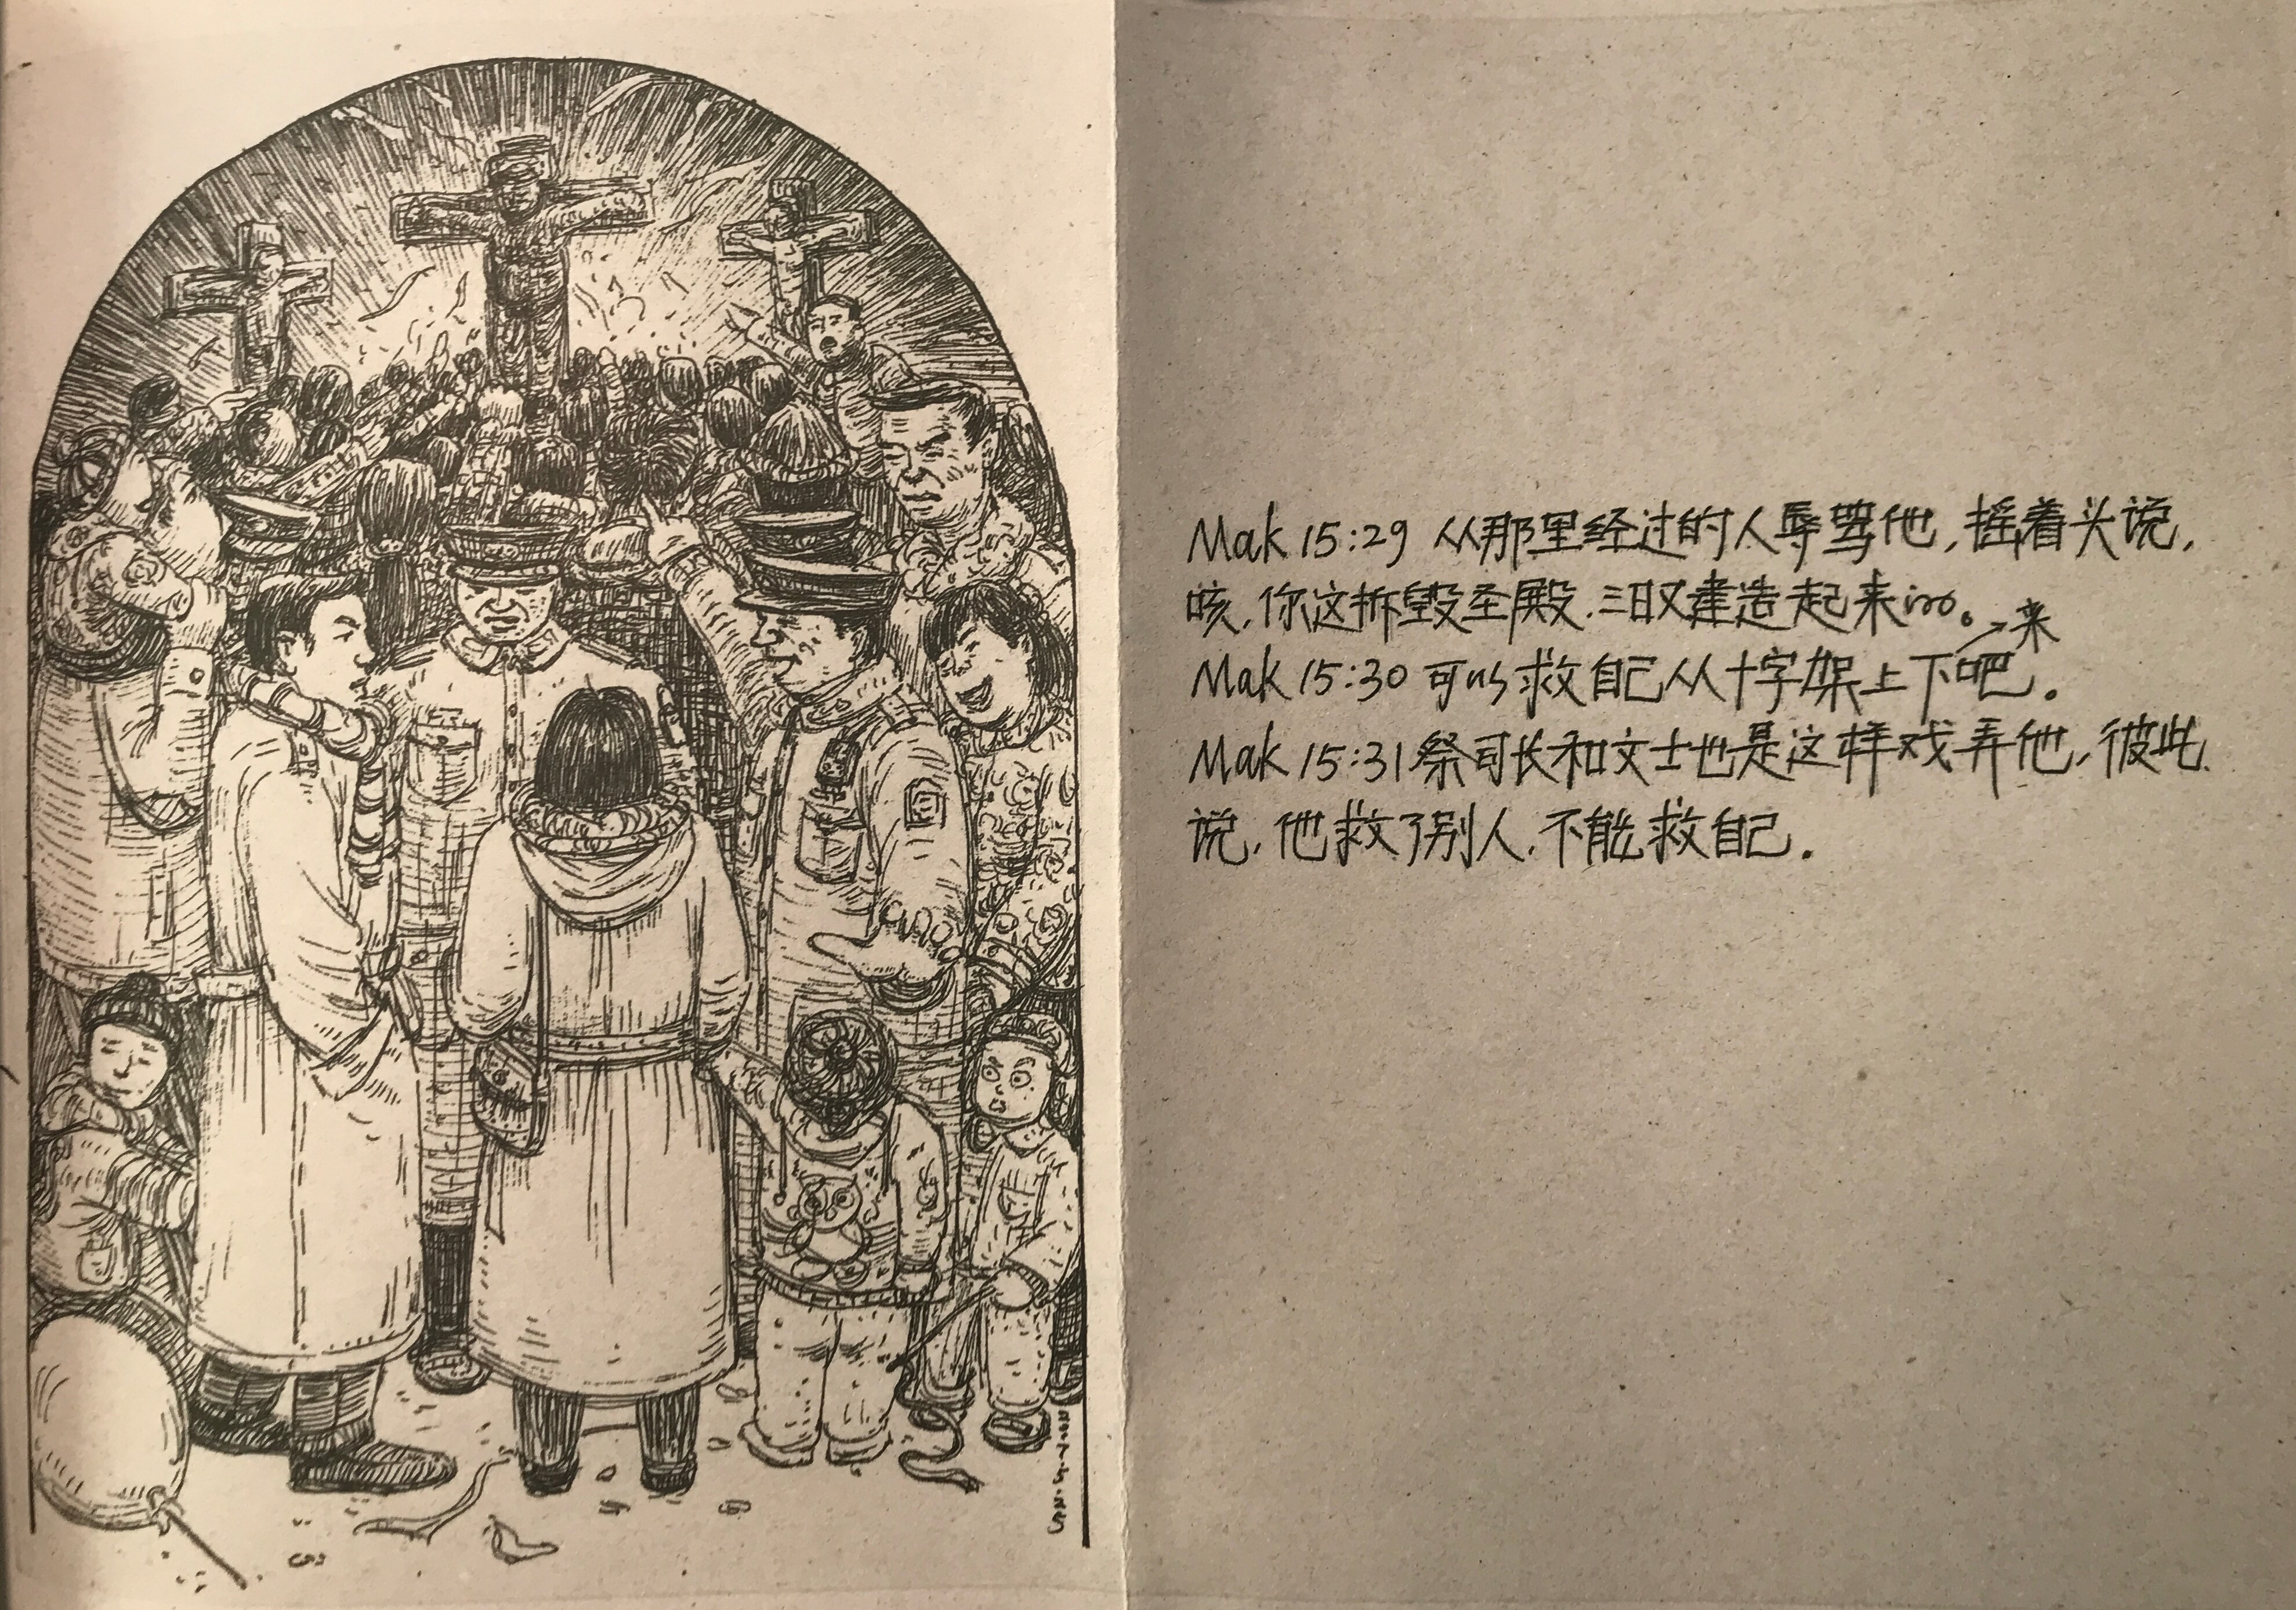 Mak 15:29 从那里经过的人辱骂他,摇着头说,
咳,你这拆毁圣殿.三日又建造起来的。
来
Mak 15:30 可以救自己从十字架上下吧.
Mak 15:31 祭司长和文士也是这样戏弄他,彼此
说,他救了别人.不能救自己.